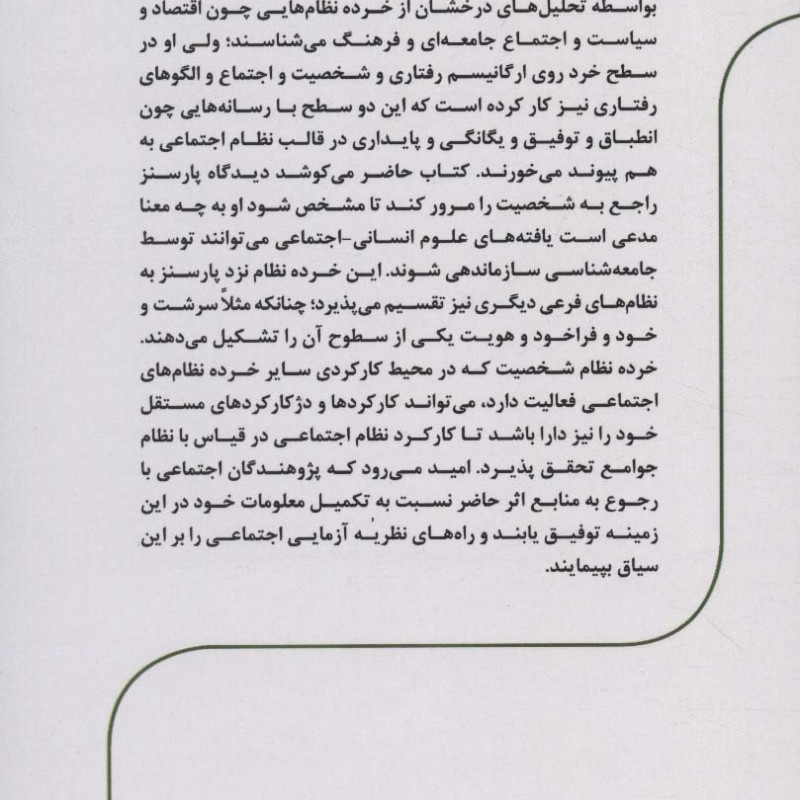 بواسطه تحلیل‌های درخشان از خرده نظام‌هایی چون اقتصاد و
سیاست و اجتماع جامعه‌ای و فرهنگ می‌شناسند؛ ولی او در
سطح خرد روی ارگانیسم رفتاری و شخصیت و اجتماع و الگوهای
رفتاری نیز کار کرده است که این دو سطح با رسانه‌هایی چون
انطباق و توفیق و یگانگی و پایداری در قالب نظام اجتماعی به
هم پیوند می‌خورند. کتاب حاضر می‌کوشد دیدگاه پارسنز
راجع به شخصیت را مرور کند تا مشخص شود او به چه معنا
مدعی است یافته‌های علوم انسانی-اجتماعی می‌توانند توسط
جامعه‌شناسی سازماندهی شوند. این خرده نظام نزد پارسنز به
نظام‌های فرعی دیگری نیز تقسیم می‌پذیرد؛ چنانکه مثلاً سرشت و
خود و فراخود و هویت یکی از سطوح آن را تشکیل می‌دهند.
خرده نظام شخصیت که در محیط کارکردی سایر خرده نظام‌های
اجتماعی فعالیت دارد، می‌تواند کارکردها و دژکارکردهای مستقل
خود را نیز دارا باشد تا کارکرد نظام اجتماعی در قیاس با نظام
جوامع تحقق پذیرد. امید می‌رود که پژوهندگان اجتماعی با
رجوع به منابع اثر حاضر نسبت به تکمیل معلومات خود در این
زمینه توفیق یابند و راه‌های نظریه آزمایی اجتماعی را بر این
سیاق بپیمایند.